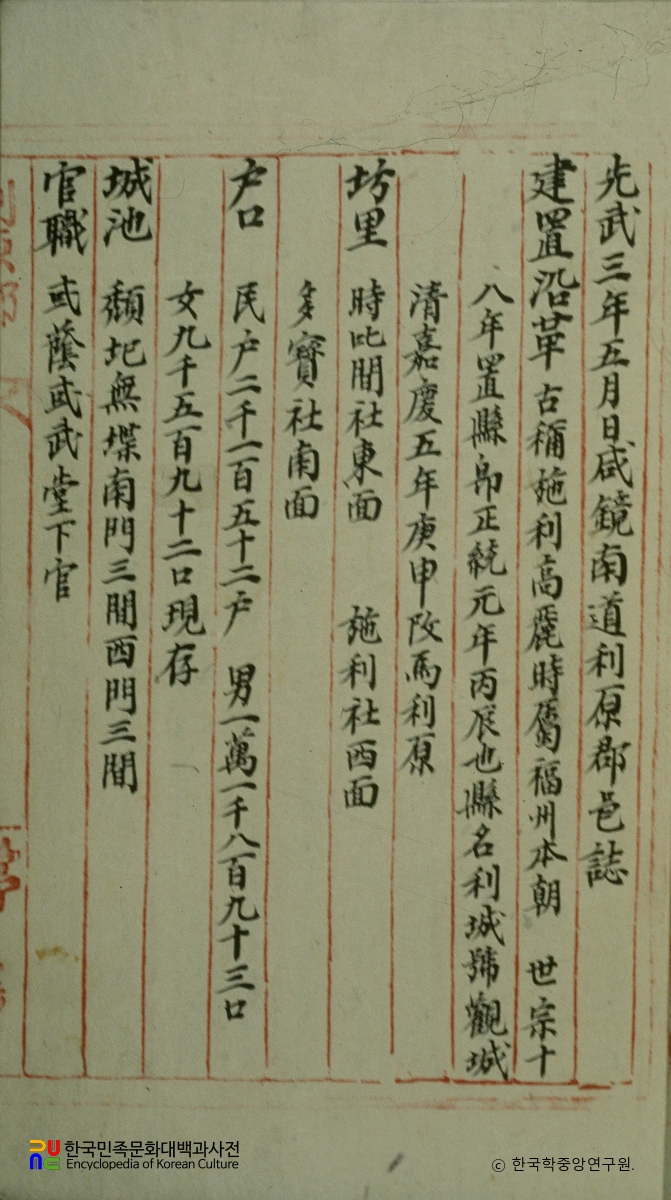 光武三年五月日咸鏡南道利原郡邑誌
建置沿革 古稱施利高麗時屬福州本朝 世宗十
八年置縣卽正統元年丙辰也縣名利城號觀城
淸嘉慶五年庚申改爲利原
坊里 時叱間社東面 施利社西面
多寶社南面
户口 民户二千一百五十二户 男一萬一千八百九十三口
女九千五百九十二口現存
城池 頹圮無堞南門三間西門三間
官職 或蔭或武堂下官
한국민족문화대백과사전
Encyclopedia of Korean Culture
© 한국학중앙연구원.